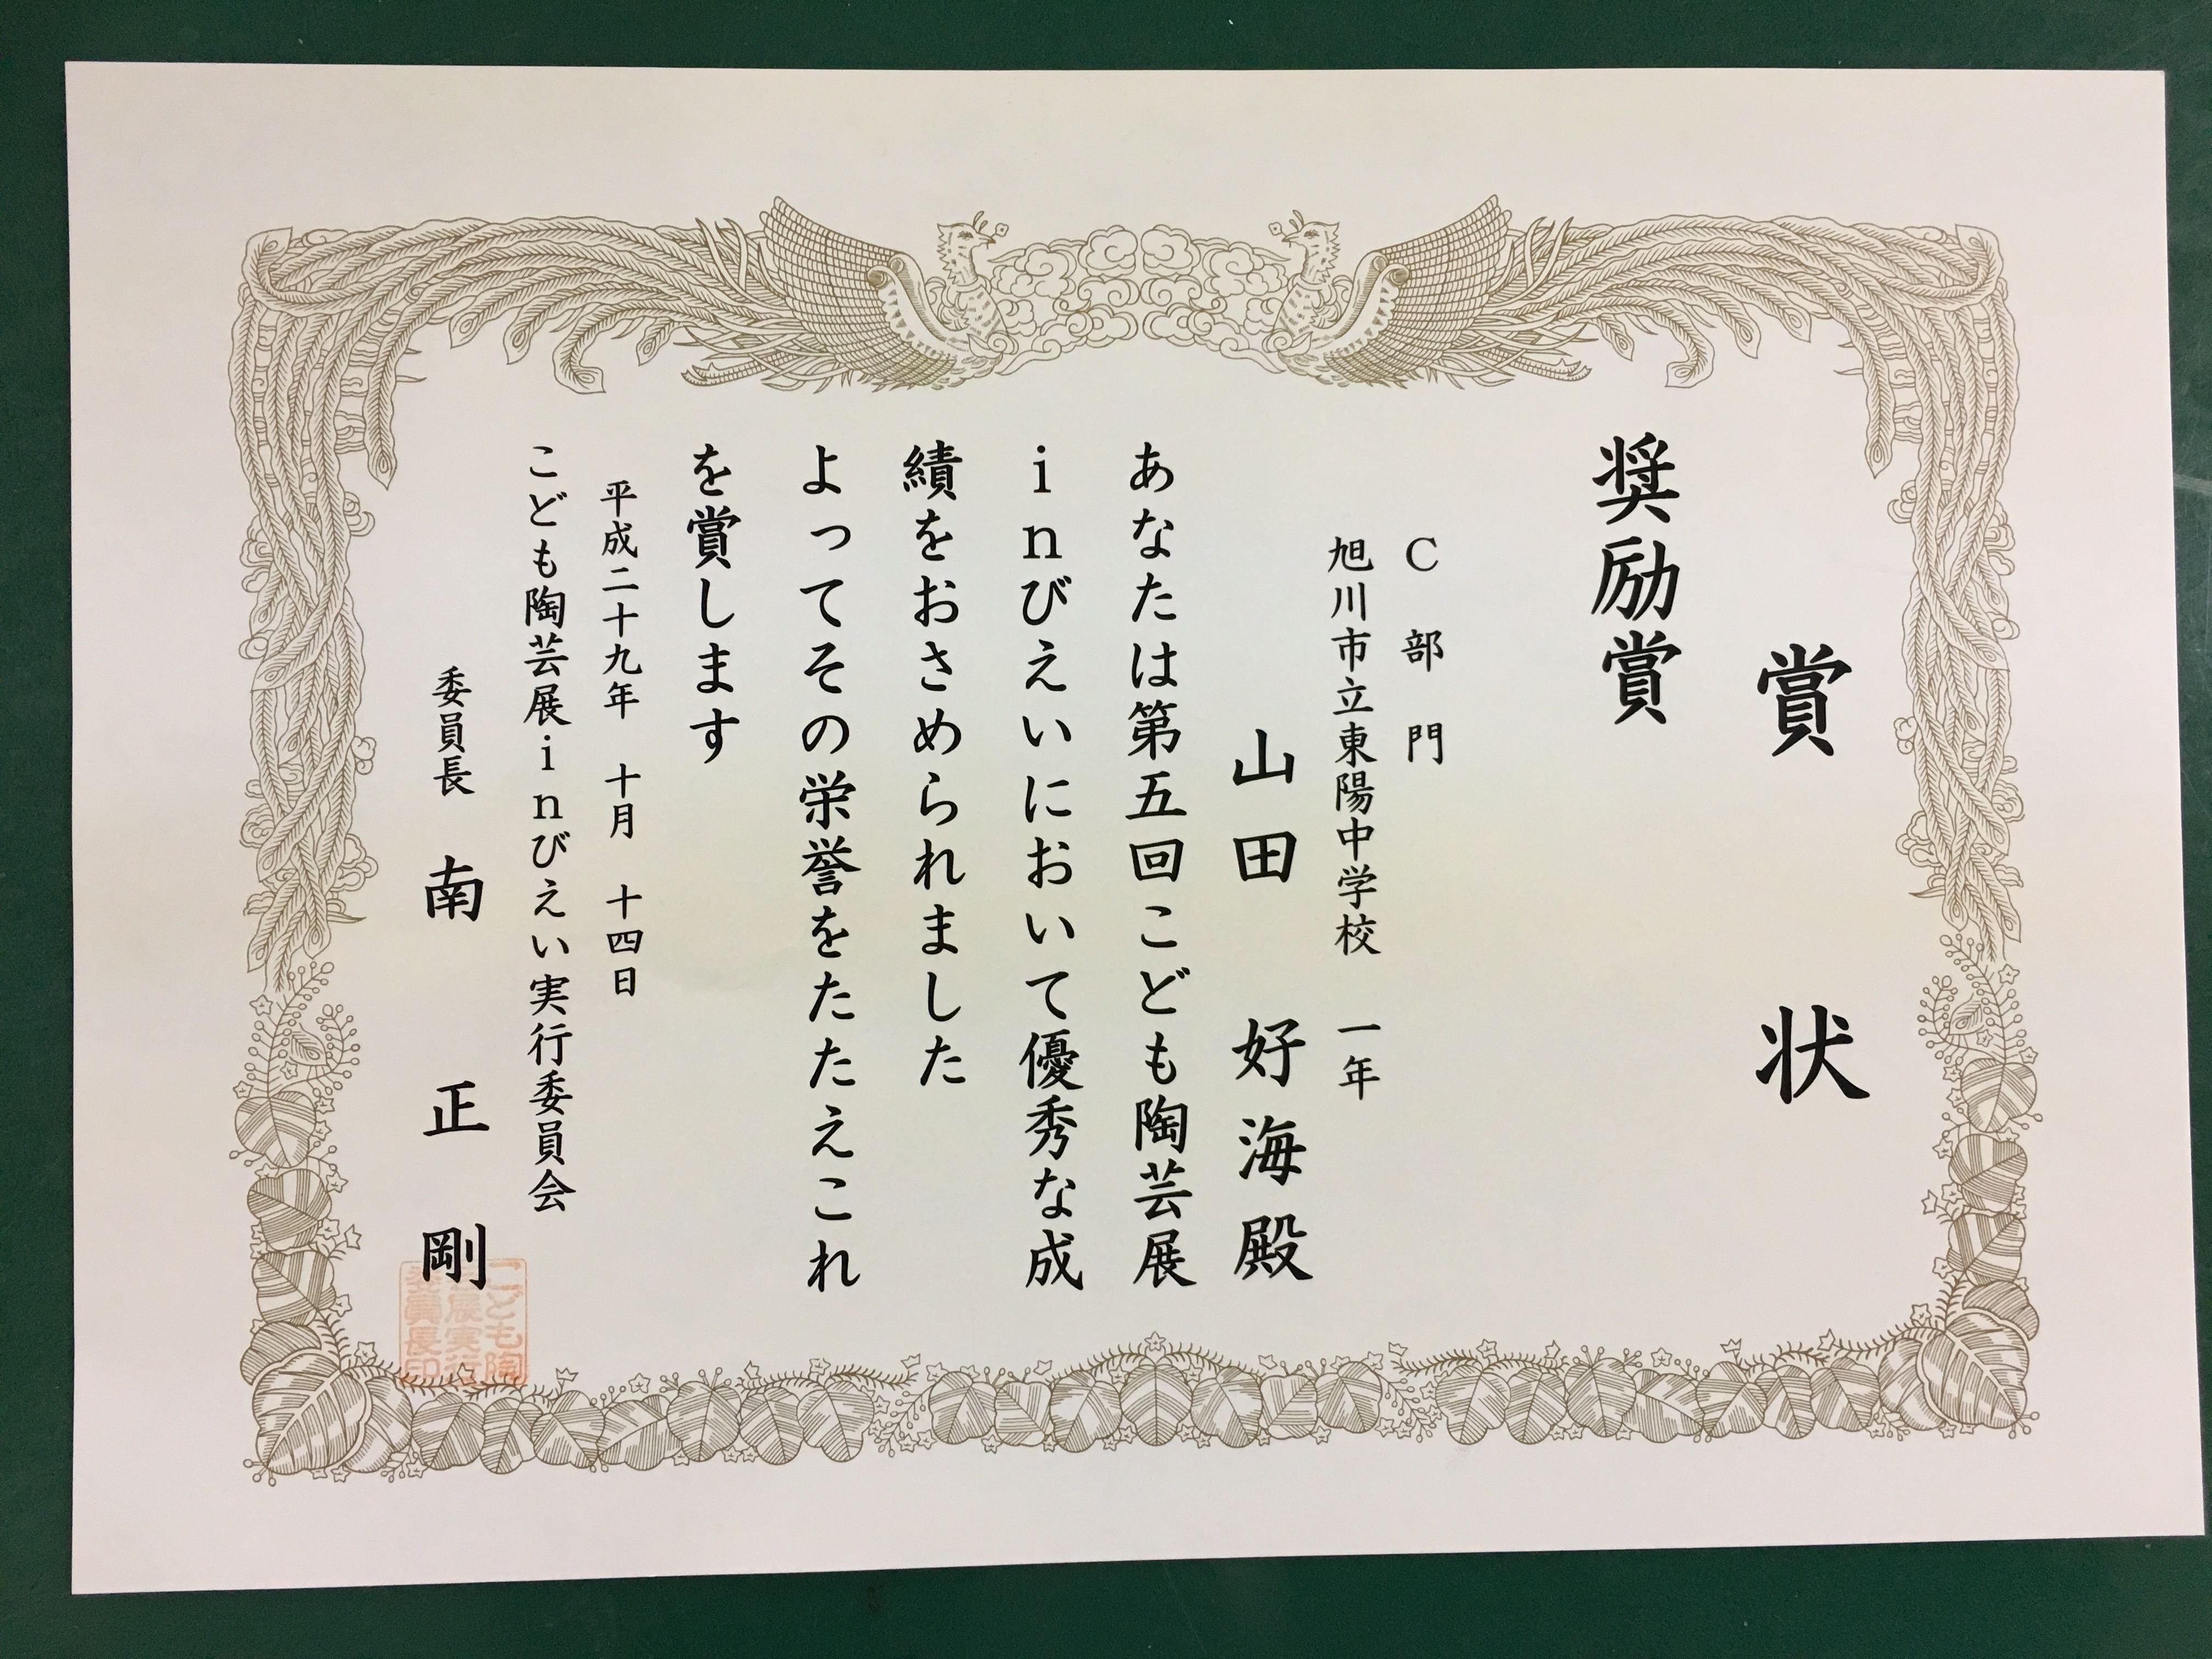 賞状
奨励賞
C部門
旭川市立東陽中学校 一年
山田 好海殿
あなたは第五回こども陶芸展
inびえいにおいて優秀な成
績をおさめられました
よってその栄誉をたたえこれ
を賞します
平成二十九年 十月 十四日
こども陶芸展inびえい実行委員会
委員長 南 正剛
こども陶
芸展実行
委員長印